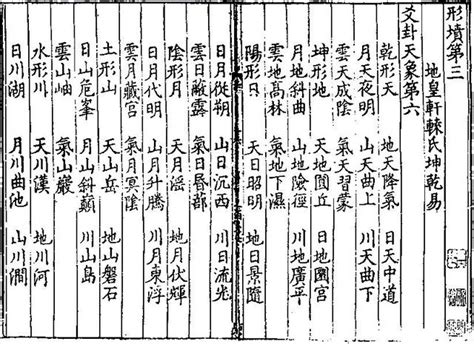 形墳第三
地皇軒轅氏坤乾易
爻卦天象第六
乾形天　地天降氣　日天中道
月天夜明　山天曲上　川天曲下
雲天成陰　氣天習蒙
坤形地　天地圜丘　日地圜宮
月地斜曲　山地險徑　川地廣平
雲地高林　氣地下濕
陽形日　天日昭明　地日景隨
日月從朔　山日沉西　川日流光
雲日蔽露　氣日昬蔀
陰形月　天月淫　地月伏輝
日月代明　山月升騰　川月東浮
雲月藏宮　氣月冥陰
土形山　天山岳　地山磐石
日山危峯　月山斜巔　川山島
雲山岫　氣山巖
水形川　天川漢　地川河
日川湖　月川曲池　山川澗